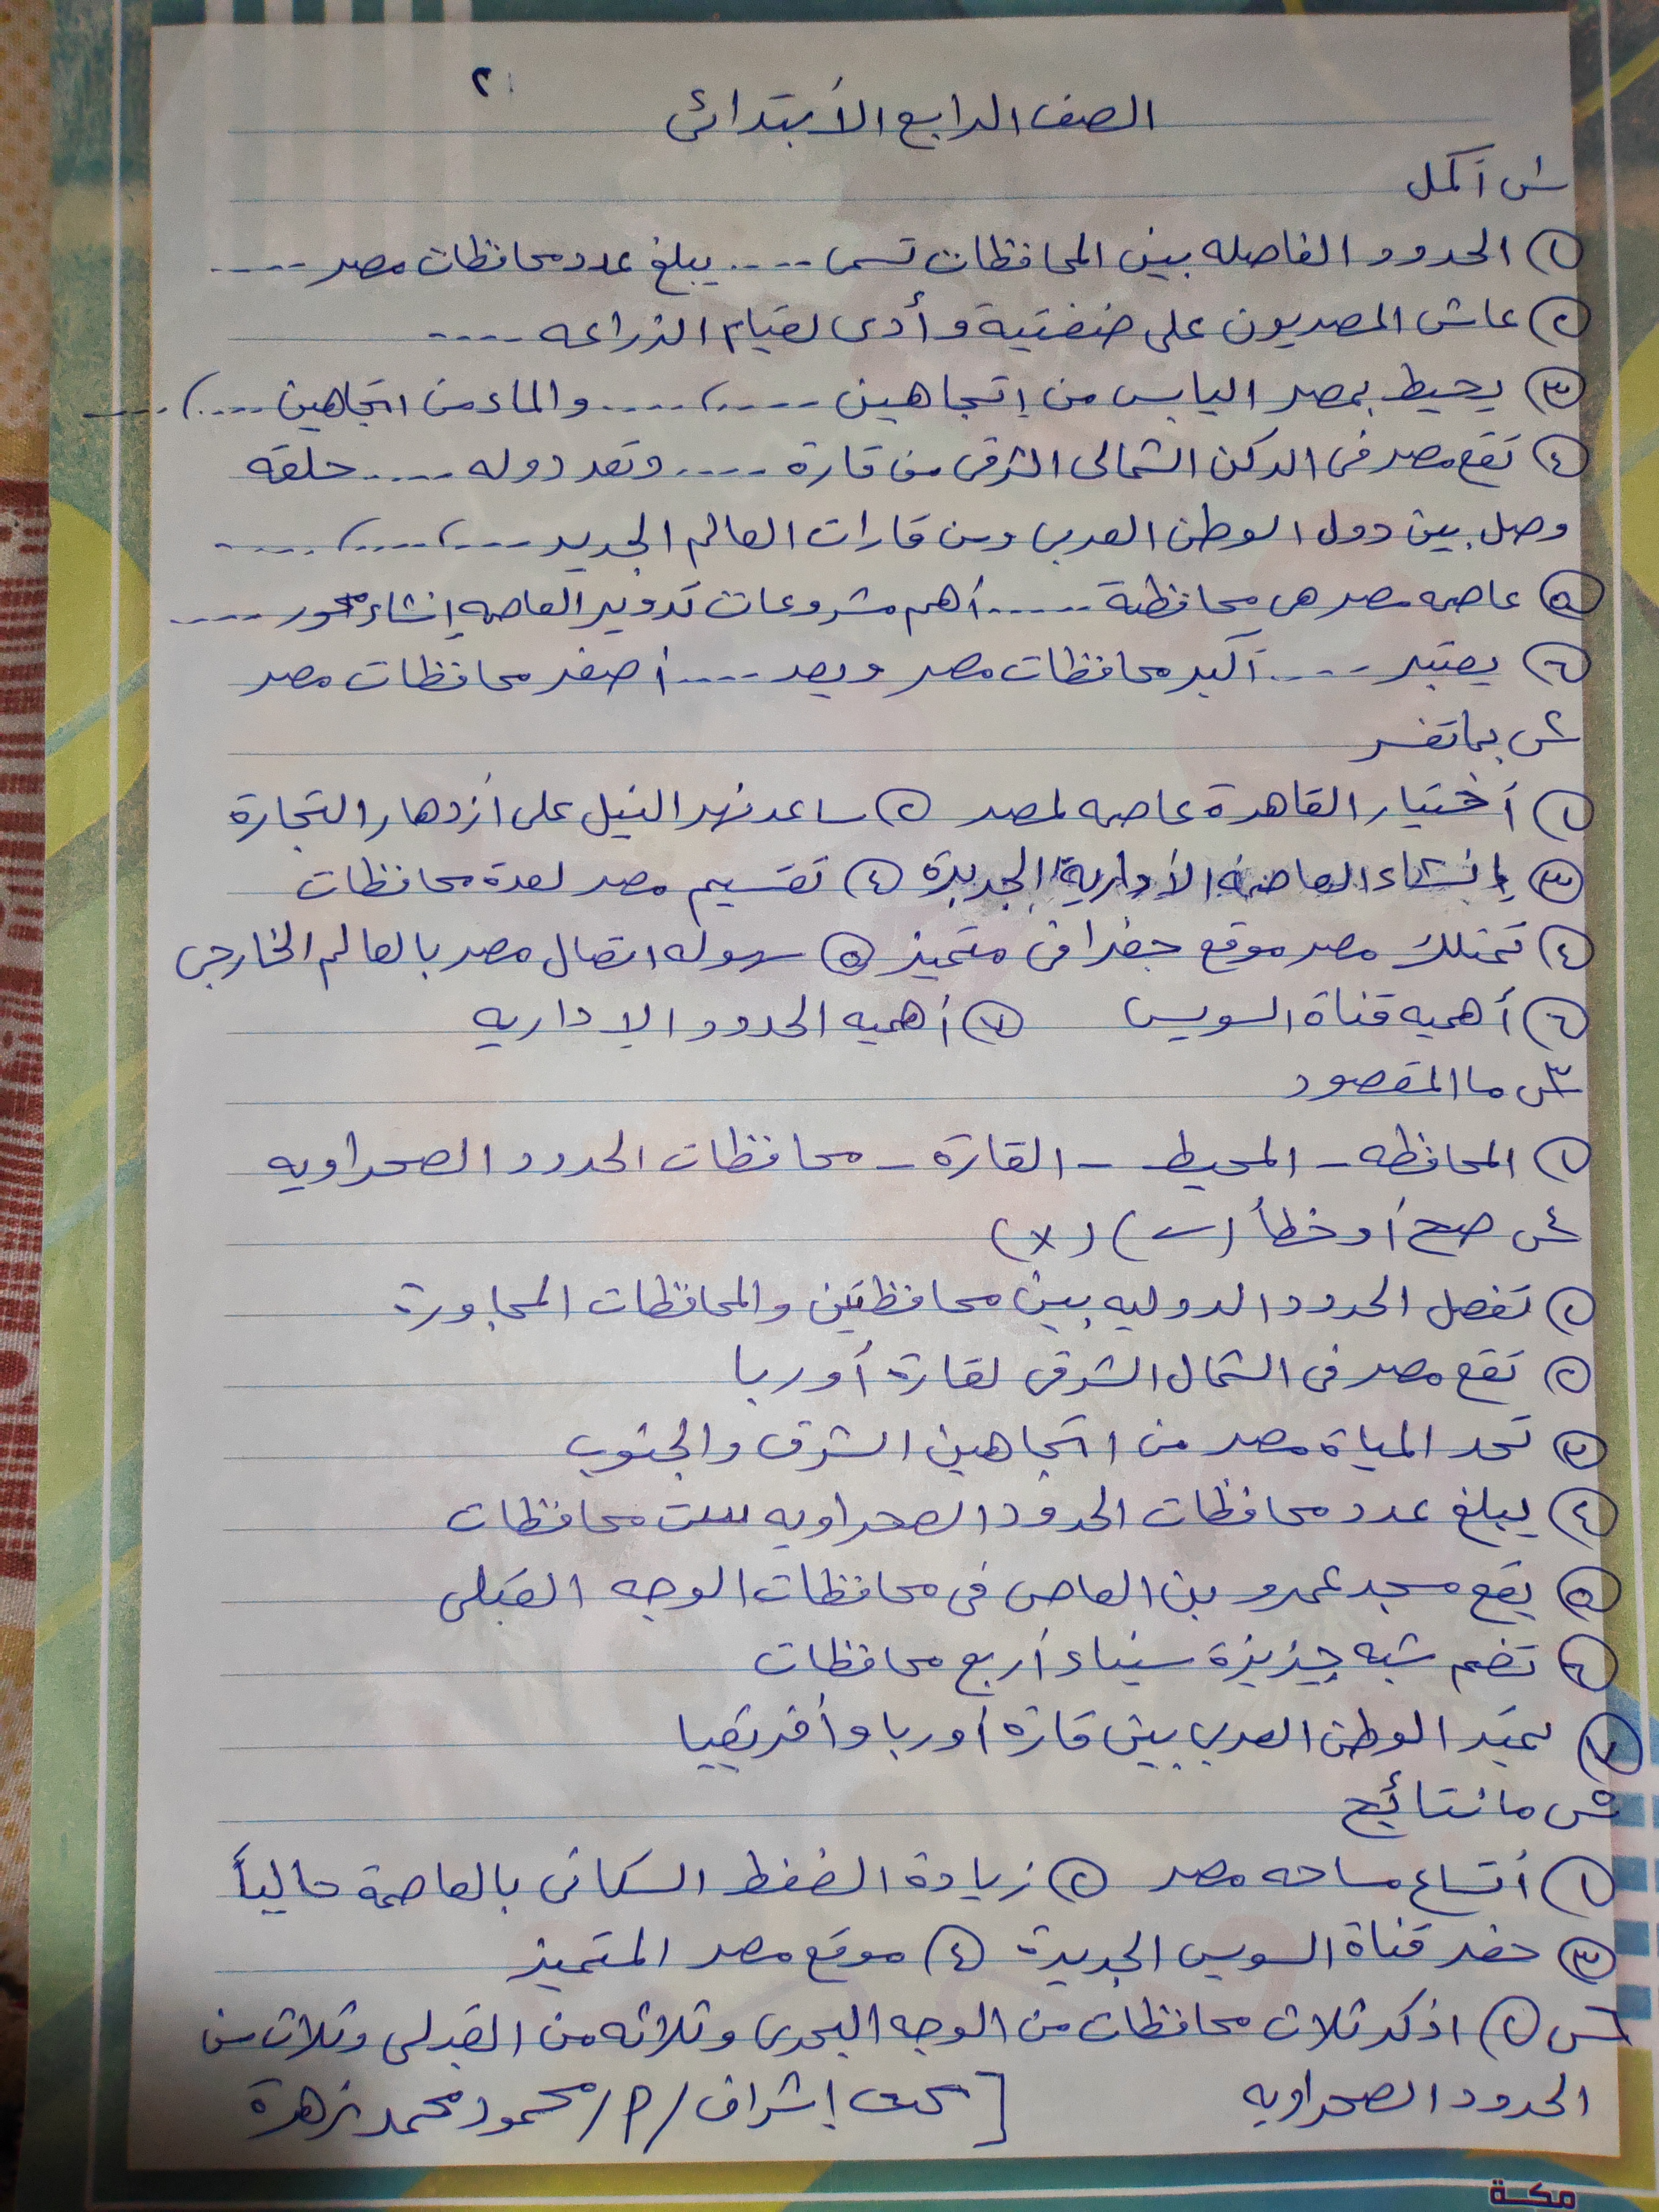 ٢
الصف الرابع الأبتدائى
س١ أكمل
١ الحدود الفاصله بين المحافظات تسمى .... يبلغ عدد محافظات مصر .....
٢ عاش المصريون على ضفتية وأدى لقيام الزراعه ....
٣ يحيط بمصر اليابس من إتجاهين ....، .... والماء من اتجاهين ....، ....
٤ تقع مصر فى الركن الشمالى الشرقى من قارة .... وتعد دوله .... حلقه
وصل بين دول الوطن العربى ومن قارات العالم الجديد ....، ....، ....
٥ عاصمه مصر هى محافظة ..... أهم مشروعات تدوير العاصمه إنشاء محور ....
٦ يعتبر .... أكبر محافظات مصر ويعد .... أصغر محافظات مصر
س٢ بما تفسر
١ أختيار القاهرة عاصمه لمصر ٢ ساعد نهر النيل على أزدهار التجارة
٣ إنشاء العاصمه الأدارية الجديدة ٤ تقسيم مصر لعدة محافظات
٤ تمتلك مصر موقع جغرافى متميز ٥ سهوله اتصال مصر بالعالم الخارجى
٦ أهميه قناة السويس ٧ أهميه الحدود الاداريه
س٣ ما المقصود
١ المحافظه - المحيط - القارة - محافظات الحدود الصحراويه
س٤ صح أو خطأ (✓) (✗)
١ تفصل الحدود الدوليه بين محافظتين والمحافظات المجاورة
٢ تقع مصر فى الشمال الشرقى لقارة أوربا
٣ تحد المياة مصر من اتجاهين الشرق والجنوب
٤ يبلغ عدد محافظات الحدود الصحراويه ست محافظات
٥ يقع مسجد عمرو بن العاص فى محافظات الوجه القبلى
٦ تضم شبه جزيزة سيناء أربع محافظات
٧ يمتد الوطن العربى بين قارة أوربا وأفريقيا
س٥ ما نتائج
١ أتساع مساحه مصر ٢ زيادة الضغط السكانى بالعاصمة حالياً
٣ حفر قناة السويس الجديدة ٤ موقع مصر المتميز
س٦ ١ اذكر ثلاث محافظات من الوجه البحرى وثلاثه من القبلى وثلاث من
الحدود الصحراويه [تحت إشراف / م / محمود محمد زهرة
مكة